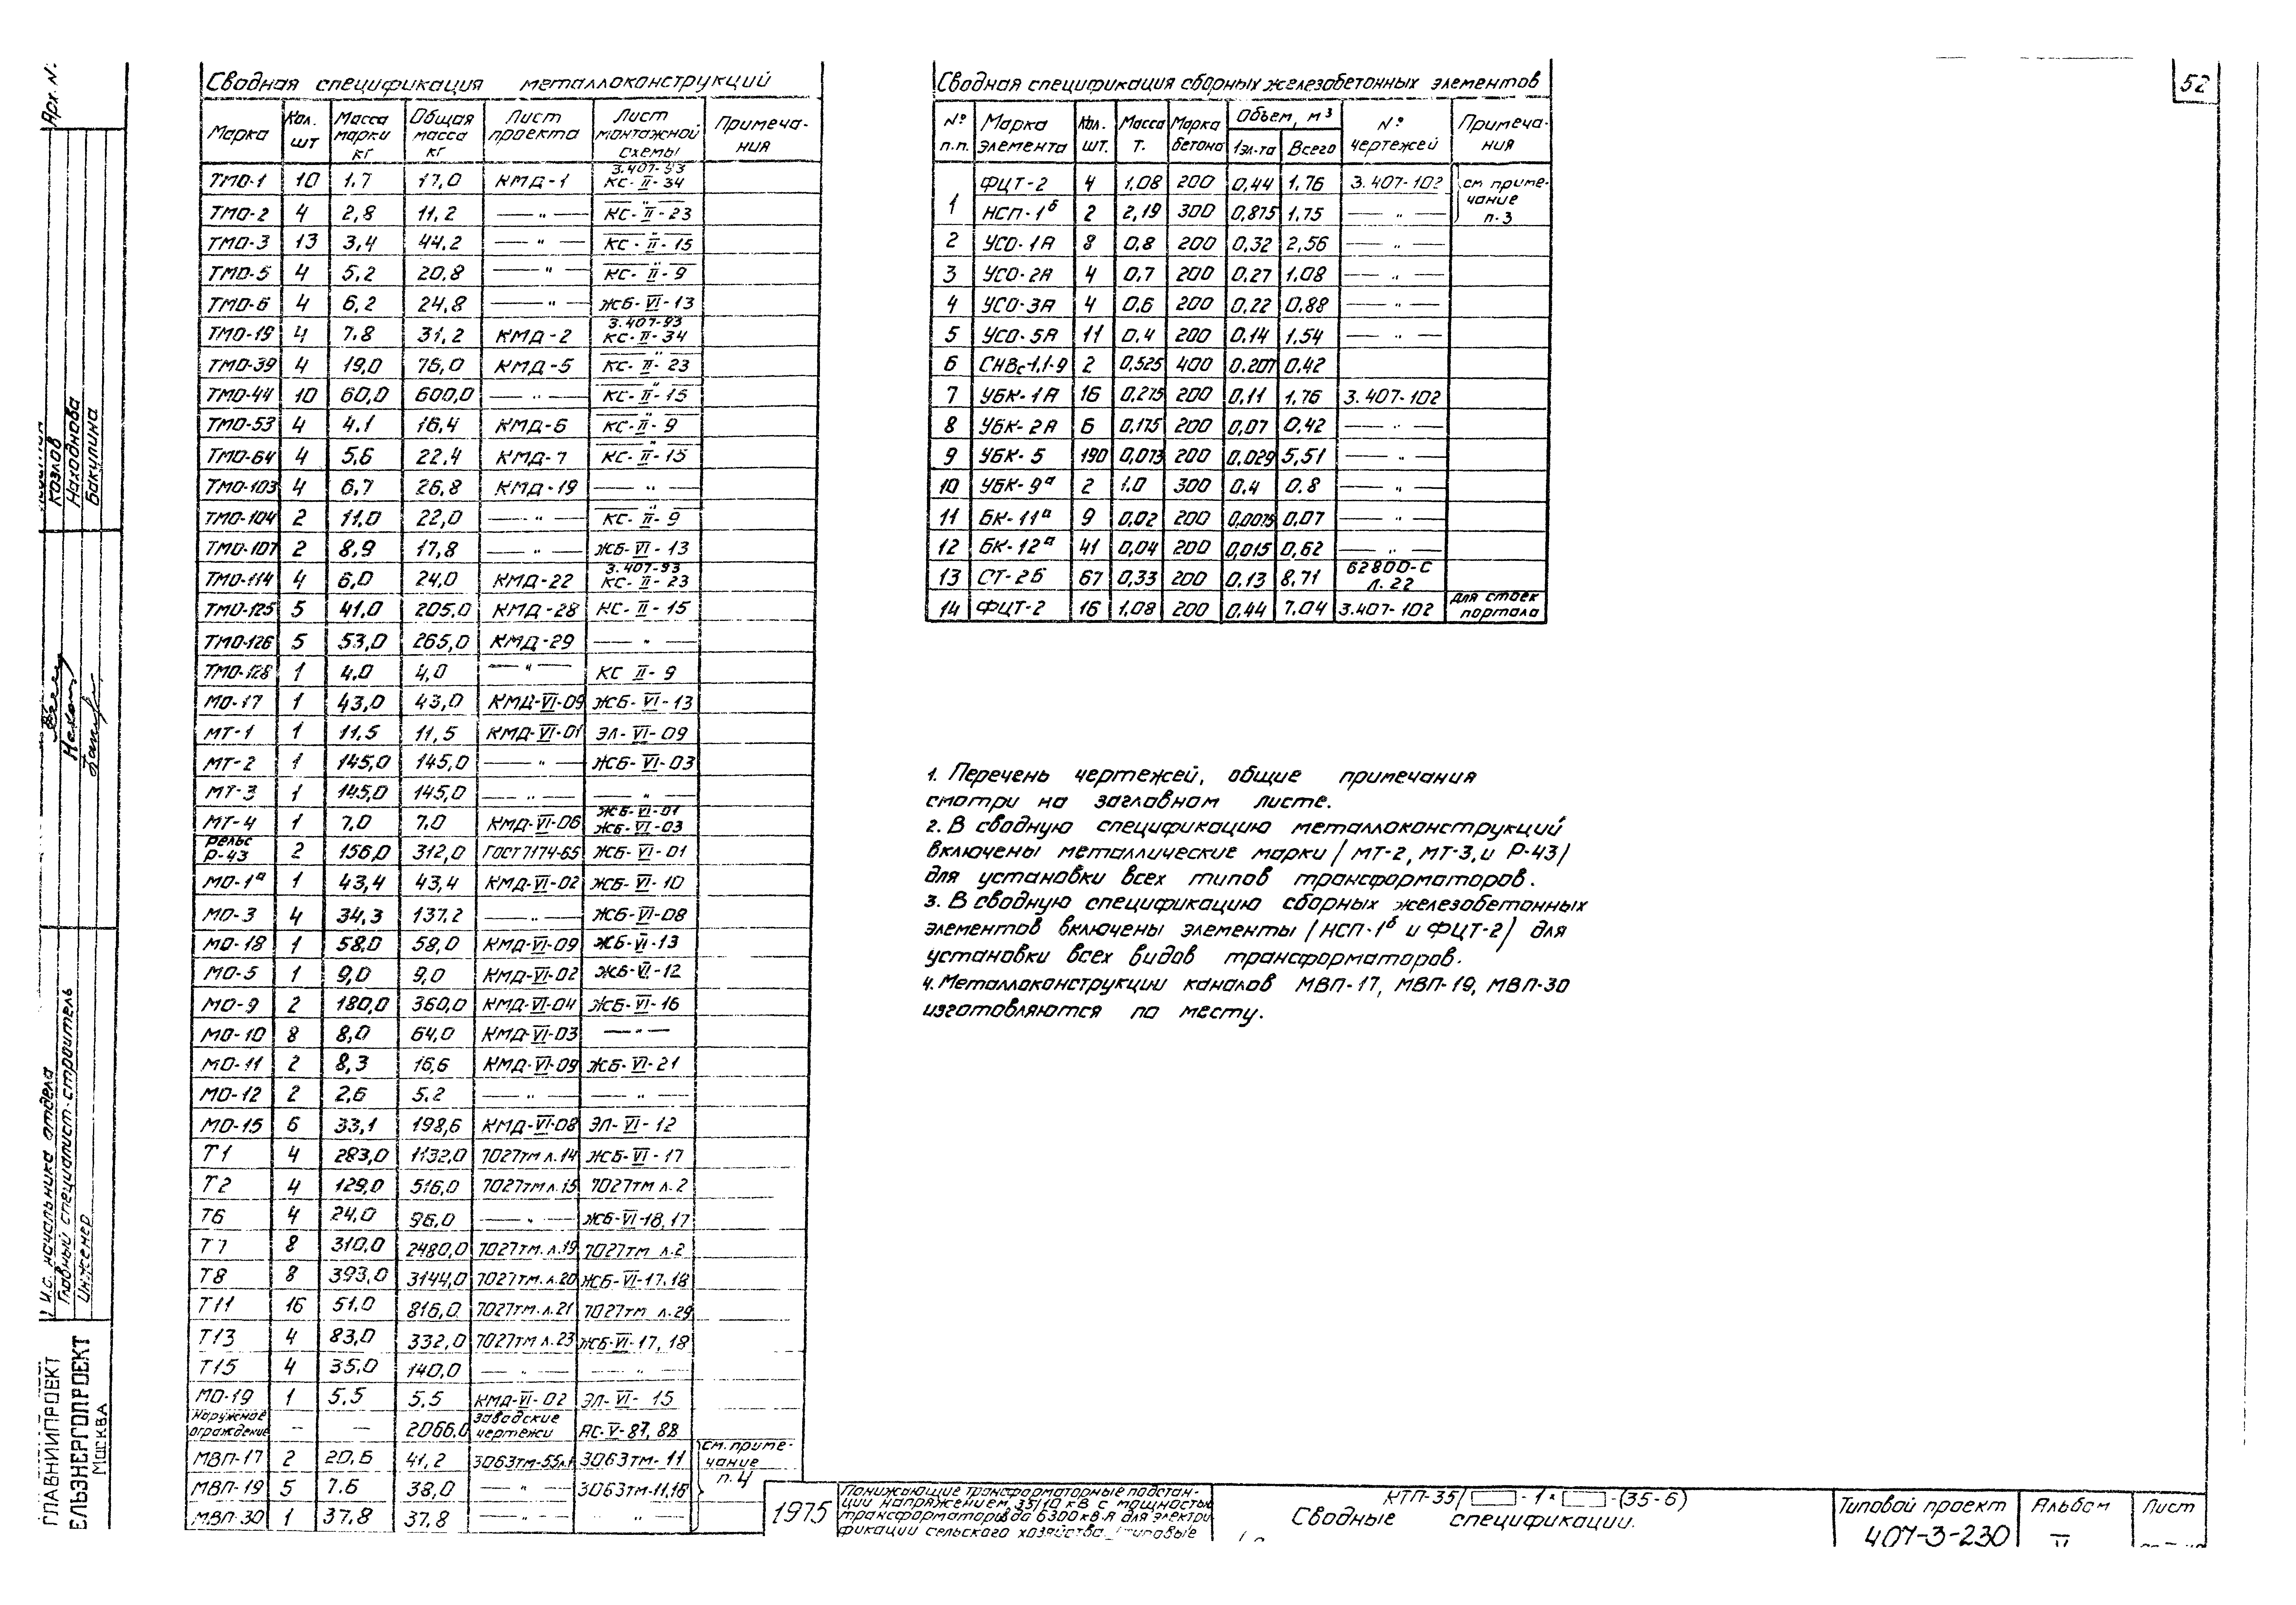 52
Арх. №
Сводная спецификация металлоконструкций
Марка | Кол. шт | Масса марки кг | Общая масса кг | Лист проекта | Лист монтажной схемы | Примечания
ТМО-1 | 10 | 1,7 | 17,0 | КМД-1 | 3.407-93 КС-II-34
ТМО-2 | 4 | 2,8 | 11,2 | —"— | КС-II-23
ТМО-3 | 13 | 3,4 | 44,2 | —"— | КС-II-15
ТМО-5 | 4 | 5,2 | 20,8 | —"— | КС-II-9
ТМО-6 | 4 | 6,2 | 24,8 | —"— | ЖБ-VI-13
ТМО-19 | 4 | 7.8 | 31,2 | КМД-2 | 3.407-93 КС-II-34
ТМО-39 | 4 | 19,0 | 76,0 | КМД-5 | КС-II-23
ТМО-44 | 10 | 60,0 | 600,0 | —"— | КС-II-15
ТМО-53 | 4 | 4.1 | 16,4 | КМД-6 | КС-II-9
ТМО-64 | 4 | 5,6 | 22,4 | КМД-7 | КС-II-15
ТМО-103 | 4 | 6,7 | 26,8 | КМД-19 | —"—
ТМО-104 | 2 | 11,0 | 22,0 | —"— | КС-II-9
ТМО-107 | 2 | 8,9 | 17,8 | —"— | ЖБ-VI-13
ТМО-114 | 4 | 6,0 | 24,0 | КМД-22 | 3.407-93 КС-II-23
ТМО-125 | 5 | 41,0 | 205,0 | КМД-28 | КС-II-15
ТМО-126 | 5 | 53,0 | 265,0 | КМД-29 | —"—
ТМО-128 | 1 | 4.0 | 4,0 | —"— | КС II-9
МО-17 | 1 | 43,0 | 43,0 | КМД-VI-09 | ЖБ-VI-13
МТ-1 | 1 | 11,5 | 11,5 | КМД-VI-01 | ЭЛ-VI-09
МТ-2 | 1 | 145,0 | 145,0 | —"— | ЖБ-VI-03
МТ-3 | 1 | 145,0 | 145,0 | —"— | —"—
МТ-4 | 1 | 7,0 | 7.0 | КМД-VI-06 | ЖБ-VI-01 ЖБ-VI-03
рельс Р-43 | 2 | 156,0 | 312,0 | ГОСТ 7174-65 | ЖБ-VI-01
МО-1ª | 1 | 43,4 | 43,4 | КМД-VI-02 | ЖБ-VI-10
МО-3 | 4 | 34,3 | 137,2 | —"— | ЖБ-VI-08
МО-18 | 1 | 58,0 | 58,0 | КМД-VI-09 | ЖБ-VI-13
МО-5 | 1 | 9,0 | 9,0 | КМД-VI-02 | ЖБ-VI-12
МО-9 | 2 | 180,0 | 360,0 | КМД-VI-04 | ЖБ-VI-16
МО-10 | 8 | 8,0 | 64,0 | КМД-VI-03 | —"—
МО-11 | 2 | 8,3 | 16,6 | КМД-VI-09 | ЖБ-VI-21
МО-12 | 2 | 2,6 | 5.2 | —"— | —"—
МО-15 | 6 | 33,1 | 198,6 | КМД-VI-08 | ЭЛ-VI-12
Т1 | 4 | 283,0 | 1132,0 | 7027тм л.14 | ЖБ-VI-17
Т2 | 4 | 129,0 | 516,0 | 7027тм л.15 | 7027тм л.2
Т6 | 4 | 24,0 | 96,0 | —"— | ЖБ-VI-18,17
Т7 | 8 | 310,0 | 2480,0 | 7027тм.л.19 | 7027тм л.2
Т8 | 8 | 393,0 | 3144,0 | 7027тм.л.20 | ЖБ-VI-17,18
Т11 | 16 | 51,0 | 816,0 | 7027тм.л.21 | 7027тм л.29
Т13 | 4 | 83,0 | 332,0 | 7027тм л.23 | ЖБ-VI-17,18
Т15 | 4 | 35,0 | 140,0 | —"— | —"—
МО-19 | 1 | 5,5 | 5,5 | КМД-VI-02 | ЭЛ-VI-15
Наружное ограждение | — | — | 2066,0 | заводские чертежи | АС-V-87,88
МВП-17 | 2 | 20,6 | 41,2 | 3063тм-55л.1 | 3063тм-11 | см. примечание п.4
МВП-19 | 5 | 7.6 | 38,0 | —"— | 3063тм-11,18
МВП-30 | 1 | 37,8 | 37,8 | —"— | —"—
Сводная спецификация сборных железобетонных элементов
№ п.п. | Марка элемента | Кол. шт. | Масса т. | Марка бетона | Объем, м³ 1эл-та | Всего | № чертежей | Примечания
1 | ФЦТ-2 | 4 | 1,08 | 200 | 0,44 | 1,76 | 3.407-102 | см. примечание п.3
НСП-1б | 2 | 2,19 | 300 | 0,875 | 1,75 | —"—
2 | УСО-1А | 8 | 0,8 | 200 | 0,32 | 2,56 | —"—
3 | УСО-2А | 4 | 0,7 | 200 | 0,27 | 1,08 | —"—
4 | УСО-3А | 4 | 0,6 | 200 | 0,22 | 0,88 | —"—
5 | УСО-5А | 11 | 0,4 | 200 | 0,14 | 1,54 | —"—
6 | СНВс-1,1-9 | 2 | 0,525 | 400 | 0,207 | 0,42
7 | УБК-1А | 16 | 0,275 | 200 | 0,11 | 1,76 | 3.407-102
8 | УБК-2А | 6 | 0,175 | 200 | 0,07 | 0,42 | —"—
9 | УБК-5 | 190 | 0,073 | 200 | 0,029 | 5,51 | —"—
10 | УБК-9ª | 2 | 1.0 | 300 | 0,4 | 0.8 | —"—
11 | БК-11ª | 9 | 0,02 | 200 | 0,0075 | 0,07 | —"—
12 | БК-12ª | 41 | 0,04 | 200 | 0,015 | 0,62 | —"—
13 | СТ-2б | 67 | 0,33 | 200 | 0.13 | 8.71 | 62800-С Л.22
14 | ФЦТ-2 | 16 | 1,08 | 200 | 0,44 | 7.04 | 3.407-102 | для стоек портала
1. Перечень чертежей, общие примечания
смотри на заглавном листе.
2. В сводную спецификацию металлоконструкций
включены металлические марки /МТ-2, МТ-3, и Р-43/
для установки всех типов трансформаторов.
3. В сводную спецификацию сборных железобетонных
элементов включены элементы /НСП-1б и ФЦТ-2/ для
установки всех видов трансформаторов.
4. Металлоконструкции каналов МВП-17, МВП-19, МВП-30
изготовляются по месту.
Козлов
Находнова
Бакулина
И.с. начальника отдела
Главный специалист-строитель
Инженер
ГЛАВНИИПРОЕКТ
ЕЛЬЭНЕРГОПРОЕКТ
Москва
1975
Понижающие трансформаторные подстан-
ции напряжением 35/10 кВ с мощностью
трансформаторов до 6300 кв.А для электри
фикации сельского хозяйства /типовые
КТП-35/ -1× -(35-6)
Сводные спецификации.
Типовой проект
407-3-230
Альбом
V
Лист